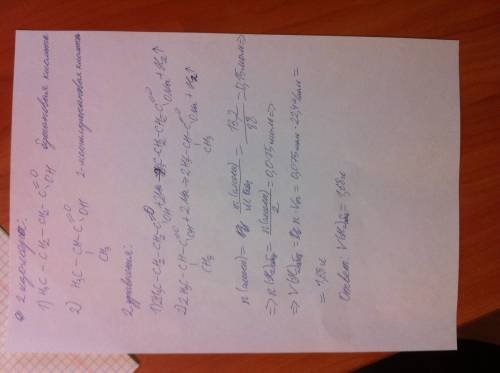 2 изомера:
1) H₃C – CH₂ – CH₂ – C =O OH бутановая кислота
2) H₃C – CH – C =O OH 2-метилпропановая кислота
CH₃
2 уравнения:
1) 2H₃C–CH₂–CH₂–C =O OH + 2Na → 2H₃C–CH₂–CH₂–C =O ONa + H₂↑
2) 2H₃C–CH–C =O OH + 2Na → 2H₃C–CH–C =O ONa + H₂↑
CH₃ CH₃
= 13,2 / 88 = 0,15 моль ⇒
2 = 0,075 моль ⇒
⇒ V(H₂) = · Vm = 0,075 моль · 22,4 л/моль =
= 1,68 л
Ответ: V(H₂) = 1,68 л